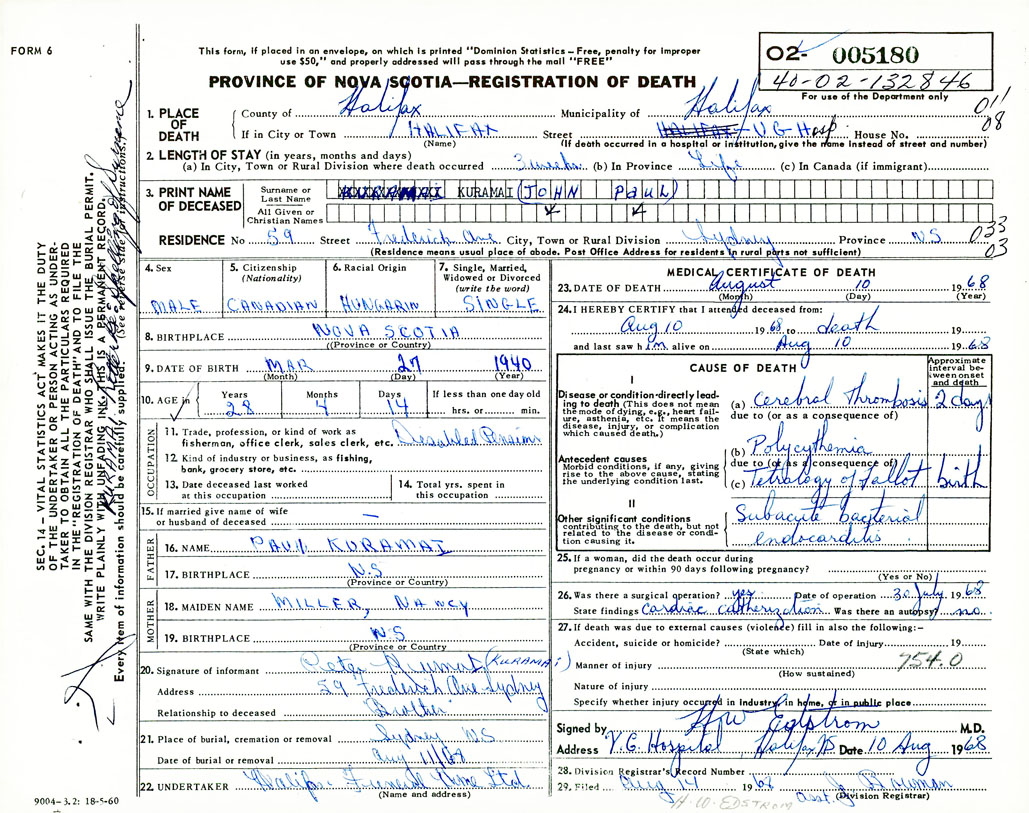 FORM 6
This form, if placed in an envelope, on which is printed "Dominion Statistics – Free, penalty for improper
use $50," and properly addressed will pass through the mail "FREE"
PROVINCE OF NOVA SCOTIA—REGISTRATION OF DEATH
02- 005180
40-02-132846
For use of the Department only
011
08
1. PLACE OF DEATH
County of Halifax Municipality of Halifax
If in City or Town HALIFAX Street V G Hosp House No.
(Name) (If death occurred in a hospital or institution, give the name instead of street and number)
2. LENGTH OF STAY (in years, months and days)
(a) In City, Town or Rural Division where death occurred 3 weeks (b) In Province Life (c) In Canada (if immigrant)
3. PRINT NAME OF DECEASED
Surname or Last Name KURAMAI (JOHN PAUL)
All Given or Christian Names
RESIDENCE No 59 Street Frederick Ave. City, Town or Rural Division Sydney Province N.S
033
03
(Residence means usual place of abode. Post Office Address for residents in rural parts not sufficient)
4. Sex MALE
5. Citizenship (Nationality) CANADIAN
6. Racial Origin HUNGARIN
7. Single, Married, Widowed or Divorced (write the word) SINGLE
8. BIRTHPLACE NOVA SCOTIA
((Province or Country)
9. DATE OF BIRTH MAR 27 1940
(Month) (Day) (Year)
10. AGE in Years 28 Months 4 Days 14 If less than one day old
hrs. or min.
OCCUPATION
11. Trade, profession, or kind of work as
fisherman, office clerk, sales clerk, etc. Disabled Pension
12. Kind of industry or business, as fishing,
bank, grocery store, etc.
13. Date deceased last worked
at this occupation
14. Total yrs. spent in
this occupation
15. If married give name of wife
or husband of deceased —
FATHER
16. NAME PAUL KURAMAI
17. BIRTHPLACE N.S
(Province or Country)
MOTHER
18. MAIDEN NAME MILLER, NANCY
19. BIRTHPLACE N S
(Province or Country
20. Signature of informant Peter (KURAMAI)
Address 59 Frederick Ave Sydney
Relationship to deceased Brother
21. Place of burial, cremation or removal Sydney NS
Date of burial or removal Aug 11/68
22. UNDERTAKER Halifax Funeral Home Ltd.
(Name and address)
9004–3.2: 18-5-60
MEDICAL CERTIFICATE OF DEATH
23. DATE OF DEATH August 10 1968
(Month) (Day) (Year)
24. I HEREBY CERTIFY that I attended deceased from:
Aug 10 1968 to death 19
and last saw him alive on Aug 10 1968
CAUSE OF DEATH
Approximate interval between onset and death
I
Disease or condition directly leading to death (This does not mean the mode of dying, e.g., heart failure, asthenia, etc. It means the disease, injury, or complication which caused death.)
(a) Cerebral Thrombosis 2 day
due to (or as a consequence of)
Antecedent causes
Morbid conditions, if any, giving rise to the above cause, stating the underlying condition last.
(b) Polycythemia
due to (or as a consequence of)
(c) Tetralogy of Fallot birth
II
Other significant conditions
contributing to the death, but not related to the disease or condition causing it.
Subacute bacterial
endocarditis
25. If a woman, did the death occur during
pregnancy or within 90 days following pregnancy?
(Yes or No)
26. Was there a surgical operation? yes Date of operation 30 July 1968
State findings Cardiac catherization Was there an autopsy? no.
27. If death was due to external causes (violence) fill in also the following:–
Accident, suicide or homicide? Date of injury 19
(State which)
754.0
Manner of injury
(How sustained)
Nature of injury
Specify whether injury occurred in industry, in home, or in public place
Signed by HW Edstrom M.D.
Address V.G. Hospital Halifax NS Date 10 Aug 1968
28. Division Registrar's Record Number
29. Filed Aug 14 1968 Asst. J Bauman
(Division Registrar)
H. W. EDSTROM
SEC. 14 – VITAL STATISTICS ACT MAKES IT THE DUTY
OF THE UNDERTAKER OR PERSON ACTING AS UNDER-
TAKER TO OBTAIN ALL THE PARTICULARS REQUIRED
IN THE "REGISTRATION OF DEATH" AND TO FILE THE
SAME WITH THE DIVISION REGISTRAR WHO SHALL ISSUE THE BURIAL PERMIT.
WRITE PLAINLY WITH UNFADING INK. THIS IS A PERMANENT RECORD.
Every item of information should be carefully supplied. (See reverse side for instructions.)